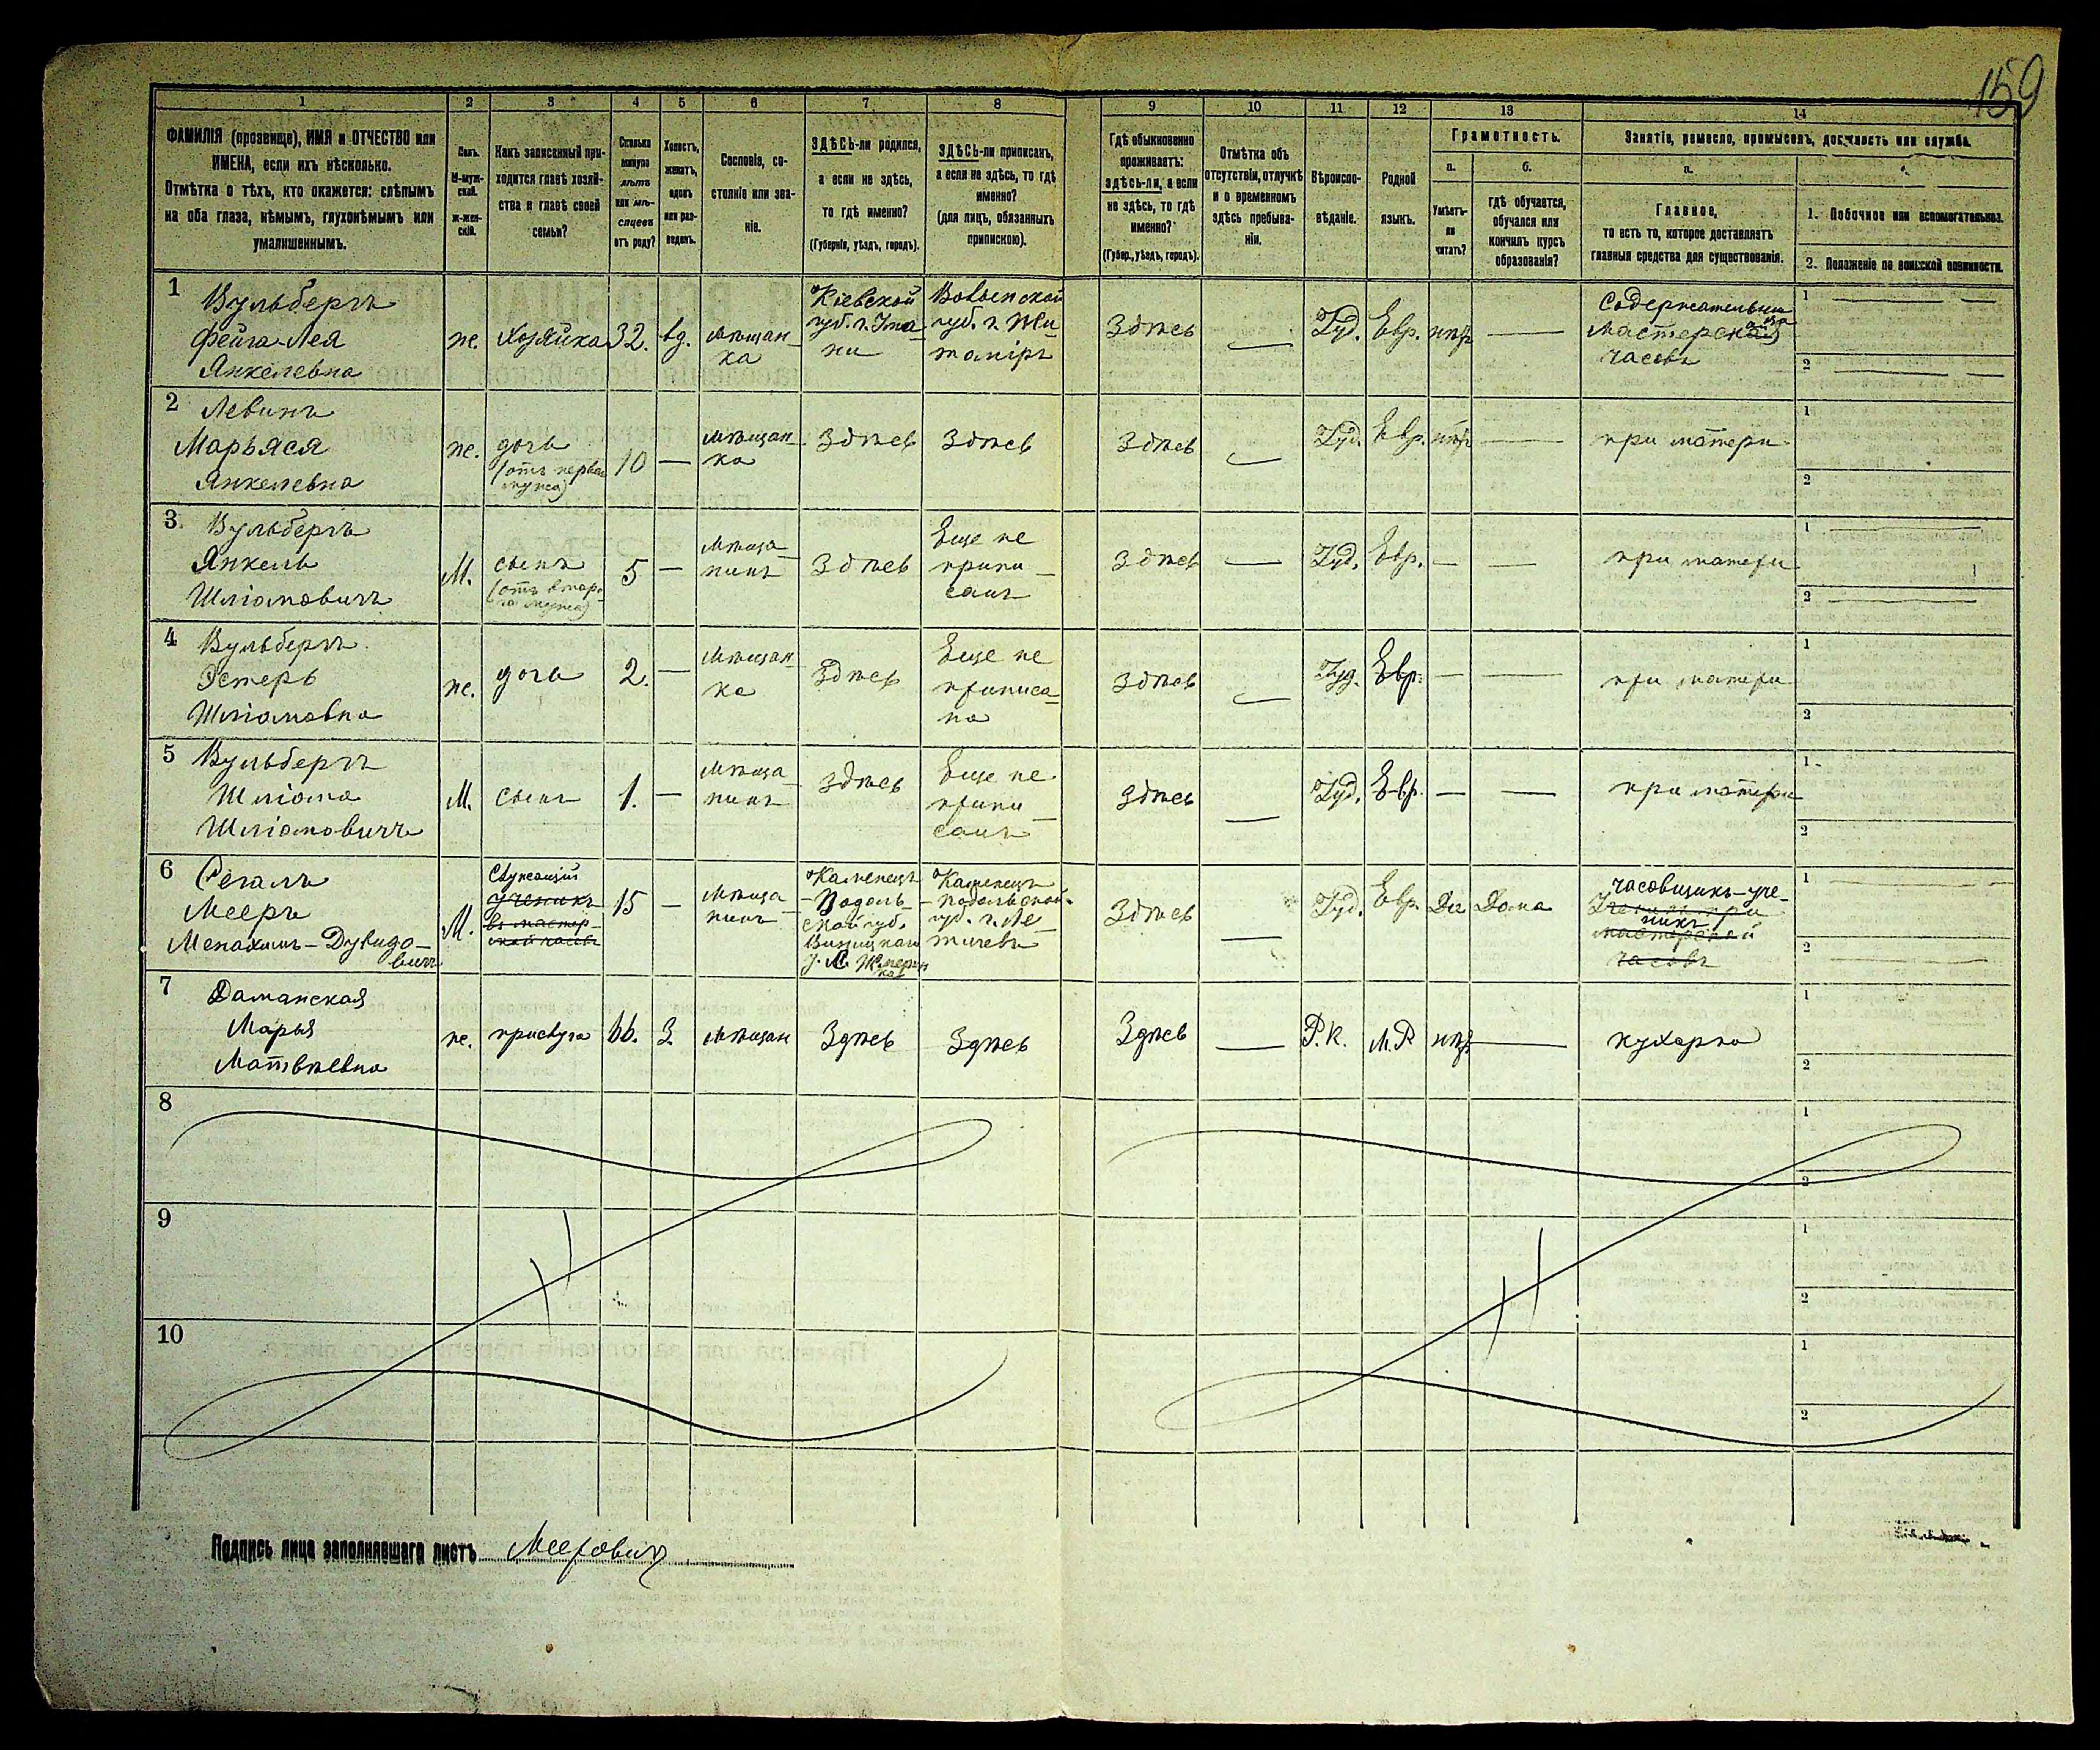 159
1 2 3 4 5 6 7 8 9 10 11 12 13 14
ФАМИЛІЯ (прозвище), ИМЯ и ОТЧЕСТВО или
ИМЕНА, если ихъ нѣсколько.
Отмѣтка о тѣхъ, кто окажется: слѣпымъ
на оба глаза, нѣмымъ, глухонѣмымъ или
умалишеннымъ.
Полъ.
М-муж-
ской.
ж-жен-
скій.
Какъ записанный при-
ходится главѣ хозяй-
ства и главѣ своей
семьи?
Сколько
минуло
лѣтъ
или мѣ-
сяцевъ
отъ роду?
Холостъ,
женатъ,
вдовъ
или раз-
веденъ.
Сословіе, со-
стояніе или зва-
ніе.
ЗДѢСЬ-ли родился,
а если не здѣсь,
то гдѣ именно?
(Губернія, уѣздъ, городъ).
ЗДѢСЬ-ли приписанъ,
а если не здѣсь, то гдѣ
именно?
(для лицъ, обязанныхъ
припискою).
Гдѣ обыкновенно
проживаетъ:
здѣсь-ли, а если
не здѣсь, то гдѣ
именно?
(Губер., уѣздъ, городъ).
Отмѣтка объ
отсутствіи, отлучкѣ
и о временномъ
здѣсь пребыва-
ніи.
Вѣроиспо-
вѣданіе.
Родной
языкъ.
Грамотность.
а.
Умѣетъ-
ли
читать?
б.
гдѣ обучается,
обучался или
кончилъ курсъ
образованія?
Занятіе, ремесло, промыселъ, должность или служба.
а.
Главное,
то есть то, которое доставляетъ
главныя средства для существованія.
1. Побочное или вспомогательное.
2. Положеніе по воинской повинности.
1
Вульбергъ
Фейга-Лея
Янкелевна
ж.
Хозяйка
32.
вд.
мѣщан-
ка
Кіевской
губ. г. Ума-
ни
Волынской
губ. г. Жи-
томіръ
Здѣсь
—
Іуд.
Евр.
нѣтъ
—
Содержательница
мастерской
часовъ
1
2
2
Левинъ
Марьяся
Янкелевна
ж.
дочь
(отъ перваго
мужа)
10
—
мѣщан-
ка
Здѣсь
Здѣсь
Здѣсь
—
Іуд.
Евр.
нѣтъ
—
при матери
1
2
3
Вульбергъ
Янкель
Шліомовичъ
М.
сынъ
(отъ второ-
го мужа)
5
—
Мѣща-
нинъ
Здѣсь
Еще не
припи-
санъ
Здѣсь
—
Іуд.
Евр.
—
—
при матери
1
2
4
Вульбергъ
Эстеръ
Шліомовна
ж.
дочь
2.
—
Мѣщан-
ка
Здѣсь
Еще не
приписа-
на
Здѣсь
—
Іуд.
Евр.
—
—
при матери
1
2
5
Вульбергъ
Шліома
Шліомовичъ
М.
сынъ
1.
—
Мѣща-
нинъ
здѣсь
Еще не
припи-
санъ
здѣсь
—
Іуд.
Евр.
—
—
при матери
1
2
6
Сегалъ
Мееръ
Менахимъ-Дувидо-
вичъ
М.
Служащій
ученикъ
въ мастер-
ской часовъ
15
—
Мѣща-
нинъ
Каменецъ
-Подоль-
ской губ.
Винницкаго
у. М. Жмерин
ка
Каменецъ
-Подольской
губ. г. Ле-
тичевъ
Здѣсь
—
Іуд.
Евр.
Да
Дома
часовщикъ-уче-
никъ
Ученикъ при
мастерской
часовъ
1
2
7
Даманская
Марья
Матвѣевна
ж.
прислуга
66.
З.
мѣщан
Здѣсь
Здѣсь
Здѣсь
—
Р.К.
М.Р
нѣтъ
—
кухарка
1
2
8
1
2
9
1
2
10
1
2
Подпись лица заполнявшаго листъ Мееровичъ